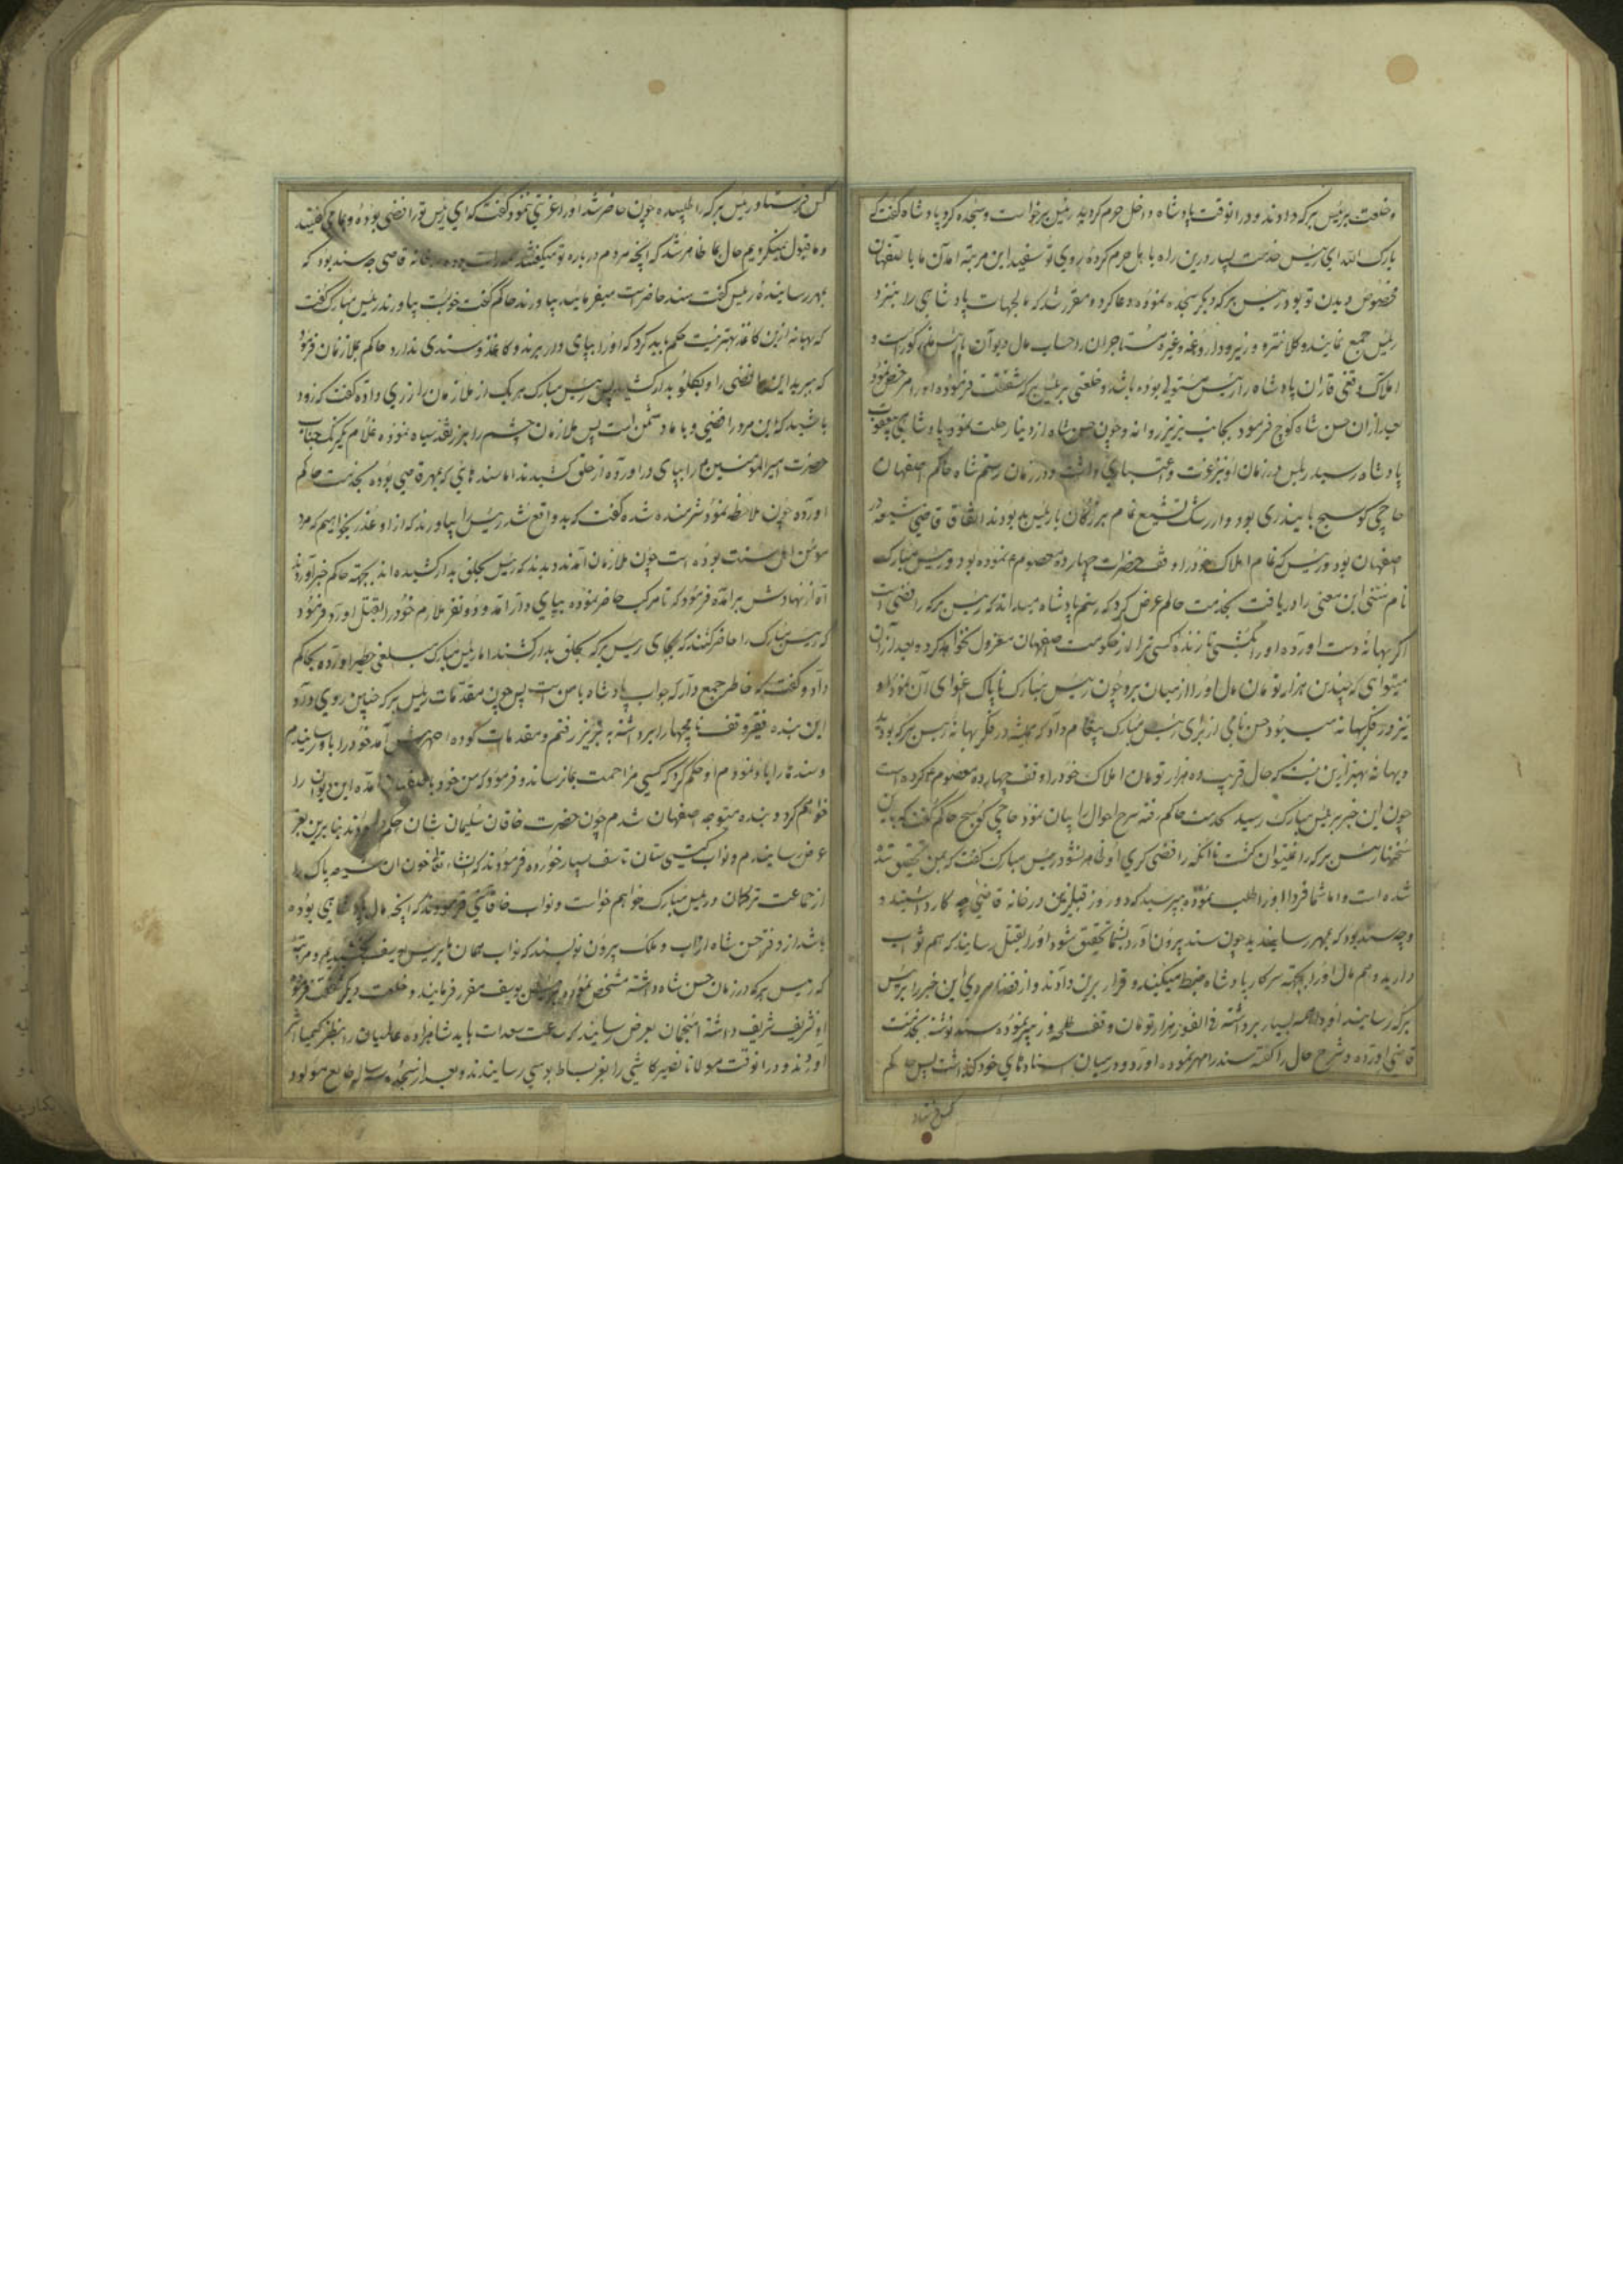 و خلعت برئیس برکه دادند و در انوقت پادشاه داخل حرم گردید رئیس برخواست و سجده کرد پادشاه گفت که
بارک الله ای رئیس خدمت بسیار درین راه با اهل حرم کرده روی تو سفید این مرتبه امدن ما باصفهان
مخصوص دیدن تو بود رئیس برکه دیگر سجده نموده دعا کرد و مقرر شد که مالجهات پادشاهی را نیز نزد
رئیس جمع نمایند و کلانتر و وزیر و داروغه و غیره مستاجران را حساب مال دیوان با رئیس مذکور است و
املاک وقفی قازان پادشاه را رئیس متولی بوده باشد و خلعتی برئیس برکه شفقت فرموده او را مرخص نمود
بعد ازان حسن شاه کوچ فرمود بجانب تبریز روانه و چون حسن شاه از دنیا رحلت نمود پادشاهی بیعقوب
پادشاه رسید رئیس در زمان او نیز عزت و اعتباری داشت و در زمان رستم شاه حاکم اصفهان
حاجی کوسج بایندری بود و از رشک تشیع تمام بزرگان با رئیس بد بودند اتفاقا قاضی شیعه در
اصفهان بود و رئیس که تمام املاک خود را وقف حضرات چهارده معصوم ع نموده بود و رئیس مبارک
نام سنی این معنی را دریافت بخدمت حاکم عرض کرد که رستم پادشاه میداند که رئیس برکه رافضی است
اگر بهانه دست اورده او را بکشی تا زنده کسی ترا از حکومت اصفهان معزول نخواهد کرد و بعد ازان
میتوانی که چندین هزار تومان مال او را از میان برد و چون رئیس مبارک ناپاک اغوای آن نمود او
نیز در فکر بهانه میبود حسن نامی از برای رئیس مبارک پیغام داد که همیشه در فکر بهانه رئیس برکه بودید
و بهانه بهتر ازین نیست که حال قریب ده هزار تومان املاک خود را وقف چهارده معصوم ع کرده است
چون این خبر برئیس مبارک رسید بخدمت حاکم رفته شرح احوال را بیان نمود حاجی کوسج حاکم گفت که باین
سخنها رئیس برکه را نمیتوان کشت تا انکه رافضی گری او ظاهر نشود رئیس مبارک گفت که بمن تحقیق شده
شده است و اما شما فردا او را طلب نموده بپرسید که دو روز قبل ازین در خانه قاضی چه کار داشتید و
و چه سند بود که بمهر رسانیدید چون سند بیرون آورد بشما تحقیق شود او را بقتل رسانید که هم ثواب
دارید و هم مال او را بجهته سرکار پادشاه ضبط میکنید و قرار برین دادند و از قضا مردی این خبر را برئیس
برکه رسانید او واهمه بسیار برداشته فی الفور هزار تومان وقف طلحه و زبیر نموده سند نوشته بخدمت
قاضی اورده و شرح حال را گفته سند را مهر نموده اورد و در میان اسنادهای خود گذاشت پس حاکم
کس فرستاد
کس فرستاد و رئیس برکه را طلبیده چون حاضر شد او را عزتی ننمود گفت که ای رئیس تو رافضی بوده و بما می گفتند
و ما قبول نمیکردیم حال بما ظاهر شد که انچه مردم در باره تو میگفتند است بوده در خانه قاضی چه سند بود که
بمهر رسانیدهٔ رئیس گفت سند حاضر است میفرمائید بیاورند حاکم گفت خوبست بیاورند رئیس مبارک گفت
که بهانه ازین کاغذ بهتر نیست حکم باید کرد که او را بپای دار برند و کاغذ و سندی ندارد حاکم بملازمان فرمود
که ببرید این رافضی را و بگلو بدار کشید پس رئیس مبارک هر یک از ملازمان را زری داده گفت که زود
باشید که این مرد رافضی و با ما دشمن است پس ملازمان چشم را بزر نقد سیاه نموده غلام یکرنگ جناب
حضرت امیرالمؤمنین ع را بپای دار اورده از حلق کشیدند اما سندهای که بمهر قاضی بوده بخدمت حاکم
اورده چون ملاحظه نمود شرمنده شده گفت که بد واقع شد رئیس را بیاورند که از او عذر بخواهیم که مرد
مؤمن اهل سنت بوده است چون ملازمان آمدند دیدند که رئیس بحلق بدار کشیده اند بجهته حاکم خبر آوردند
آه از نهادش برامده فرمود که تا مرکب حاضر نموده بپای دار آمد و دو نفر ملازم خود را بقتل اورد و فرمود
که رئیس مبارک را حاضر کنند که بجای رئیس برکه بحلق بدار کشند اما رئیس مبارک مبلغی خطیر اورده بحاکم
داد و گفت که خاطر جمع دار که جواب پادشاه با من است پس چون مقدمات رئیس برکه چنین روی داد
این بنده فقیر وقف نامچها را برداشته به تبریز رفتم و مقدمات آمد خود را باو رسانیدم
و سندها را باو نمودم او حکم کرد که کسی مزاحمت بما نرساند و فرمود که من خود باصفهان آمده این دیوان را
خواهم کرد و بنده متوجه اصفهان شدم چون حضرت خاقان سلیمان شان حکم فرمودند بنابرین بعز
عرض رسانیدم و نواب گیتی ستان تاسف بسیار خورده فرمودند که انشاء الله خون ان شیعه پاک را
از جماعت ترکمان و رئیس مبارک خواهم خواست و نواب خاقانی فرمودند که انچه مال پادشاهی بوده
باشد از دفتر حسن شاه ارباب و ملک بیرون نویسند که نواب همان برئیس یوسف بخشیدیم و مرتبه
که رئیس برکه در زمان حسن شاه داشته مشخص نموده برئیس یوسف مقرر فرمایند و خلعت دیگر شفقت فرموده
او تشریف شریف داشته منجمان بعرض رسانیدند که ساعت سعدات باید شاهزاده عالمیان را بنظر کیمیا اثر
اورند و در انوقت مولانا نصیر کاشی را بعز بساط بوسی رسانیدند و بعد از سجده رساله طالع مولود